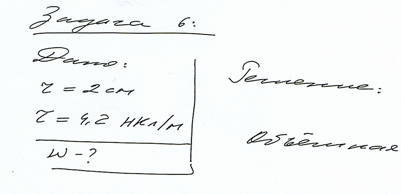 Задача 6:
Дано:
r = 2 см
τ = 4,2 нКл/м
w - ?
Решение:
Объёмная